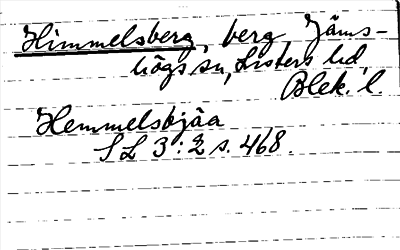 Himmelsberg, berg Jäms-
högs sn, Listers hd,
Blek. l.
Hemmelsbjäa
SL 3:2 s. 468.